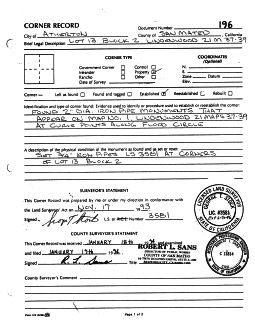 CORNER RECORD
Document Number 196
City of ATHERTON County of SAN MATEO California
Brief Legal Description LOT 13 BLOCK 2 LINDENWOOD 21 M 37-39
CORNER TYPE
COORDINATES
(Optional)
Government Corner Control
Meander Property
Rancho Other
Date of Survey
N.
E.
Zone Datum
Elev.
Corner - Left as found Found and tagged Established Reestablished Rebuilt
Identification and type of corner found: Evidence used to identify or procedure used to establish or reestablish the corner:
FOUND 2" DIA. IRON PIPE MONUMENTS THAT
APPEAR ON MAP NO. 1 LINDENWOOD 21 MAPS 37-39
AT CURVE POINTS ALONG FLOOD CIRCLE
A description of the physical condition of the monument as found and as set or reset:
SET 3/4" IRON PIPES LS 3581 AT CORNERS
OF LOT 13 BLOCK 2
SURVEYOR'S STATEMENT
This Corner Record was prepared by me or under my direction in conformance with
the Land Surveyors' Act on NOV. 17 1993
Signed L.S. 3581
LICENSED LAND SURVEYOR
LIC. #3581
STATE OF CALIFORNIA
COUNTY SURVEYOR'S STATEMENT
This Corner Record was received JANUARY 18th 1996 and examined
and filed JANUARY 19th 1996
Signed R. L. Sans
ROBERT L. SANS
COUNTY OF SAN MATEO
County Surveyor's Comment
Page 1 of 2